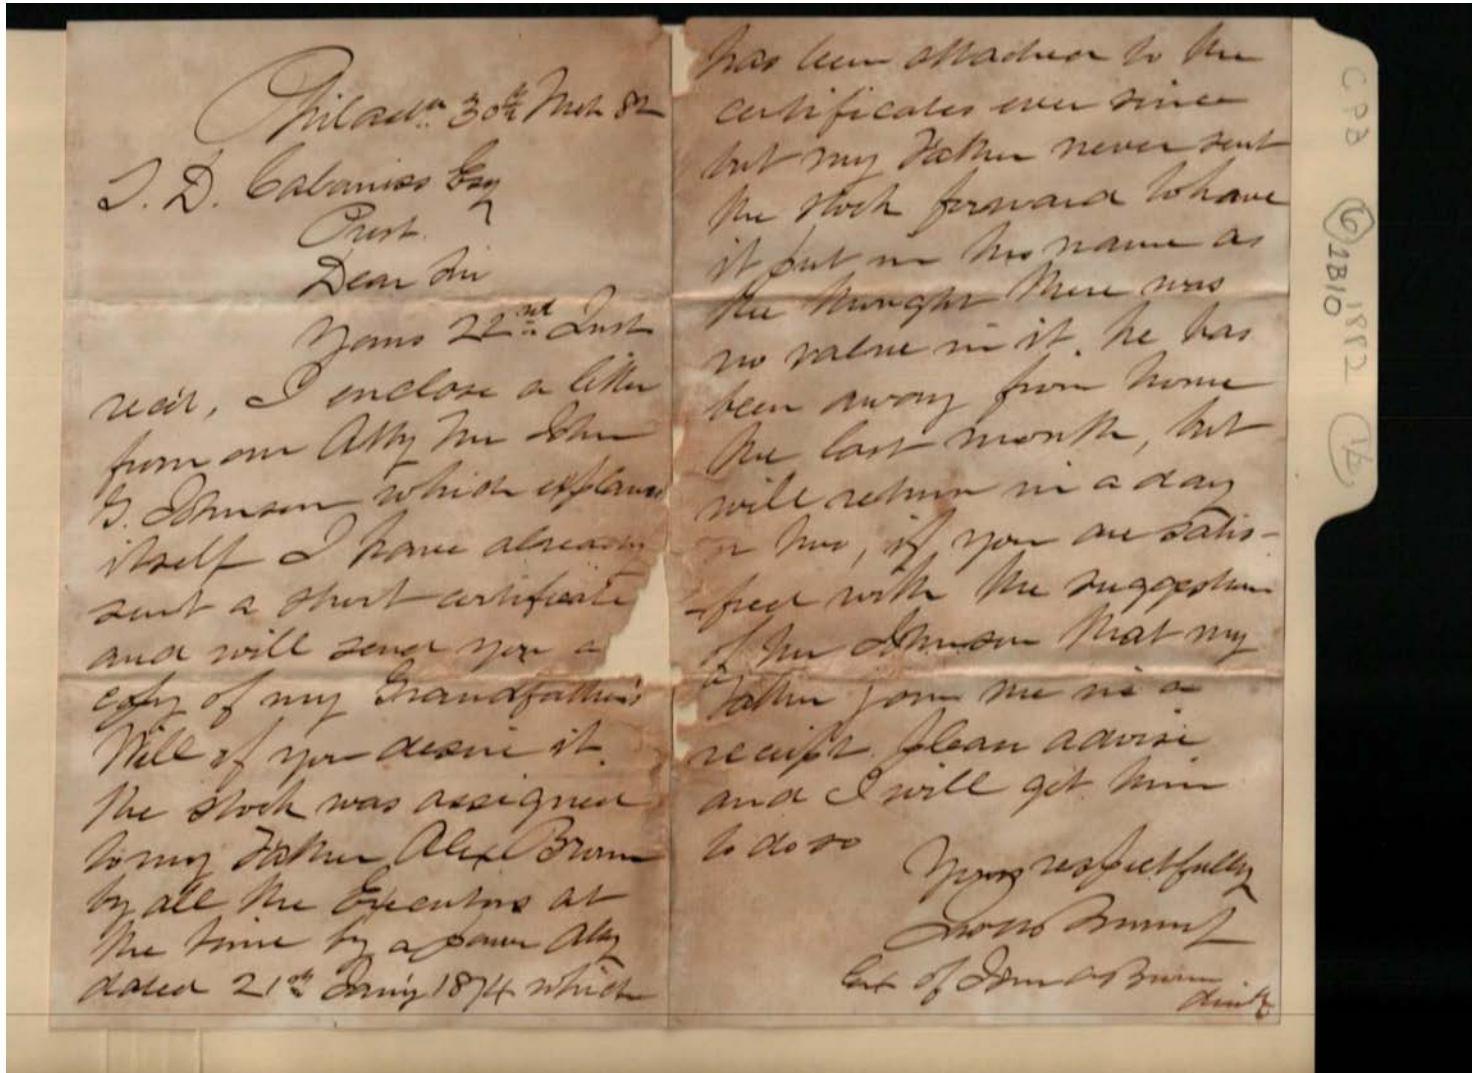 Philada 30th Mch 82
S. D. Cabaniss Esq
Prest.
Dear Sir
Yours 22nd Inst
recd, I enclose a letter
from our Atty Mr John
G. Johnson which explains
itself I have already
sent a short certificate
and will send you a
copy of my Grandfather's
Will if you desire it.
the stock was assigned
to my Father Alex Brown
by all the Executors at
the time by a power Atty
dated 21st Jany 1874 which
has been attached to the
certificates ever since
but my Father never sent
the stock forward to have
it put in his name as
he thought there was
no value in it. he has
been away from home
the last month, but
will return in a day
or two, if you are satis-
-fied with the suggestion
of Mr Johnson that my
Father join me in a
receipt please advise
and I will get him
to do so
Yours respectfully
Brown
Ext of John A Brown
decd
CPB 6 1B10
1882 16